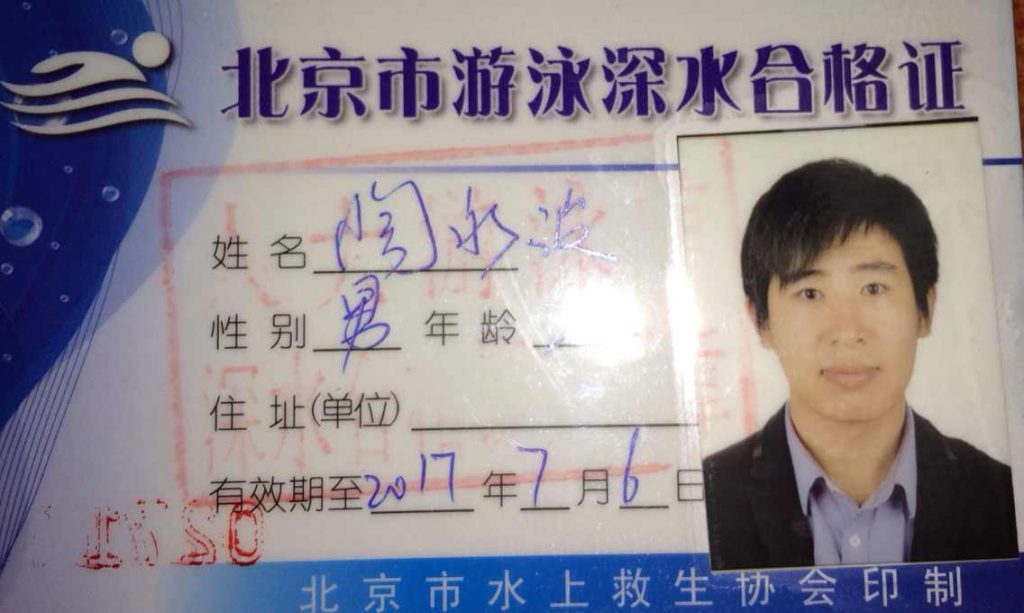 北京市游泳深水合格证
姓名 陶永波
性别 男 年龄
住址(单位)
有效期至2017年7月6日
北京市水上救生协会印制